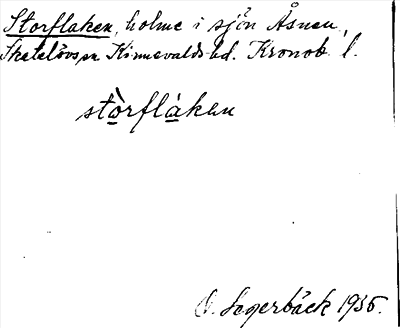 Storflaken, holme i sjön Åsnen,
Skatelövs sn Kinnevalds hd. Kronob. l.
stòrflàken
O. Segerbäck 1935.